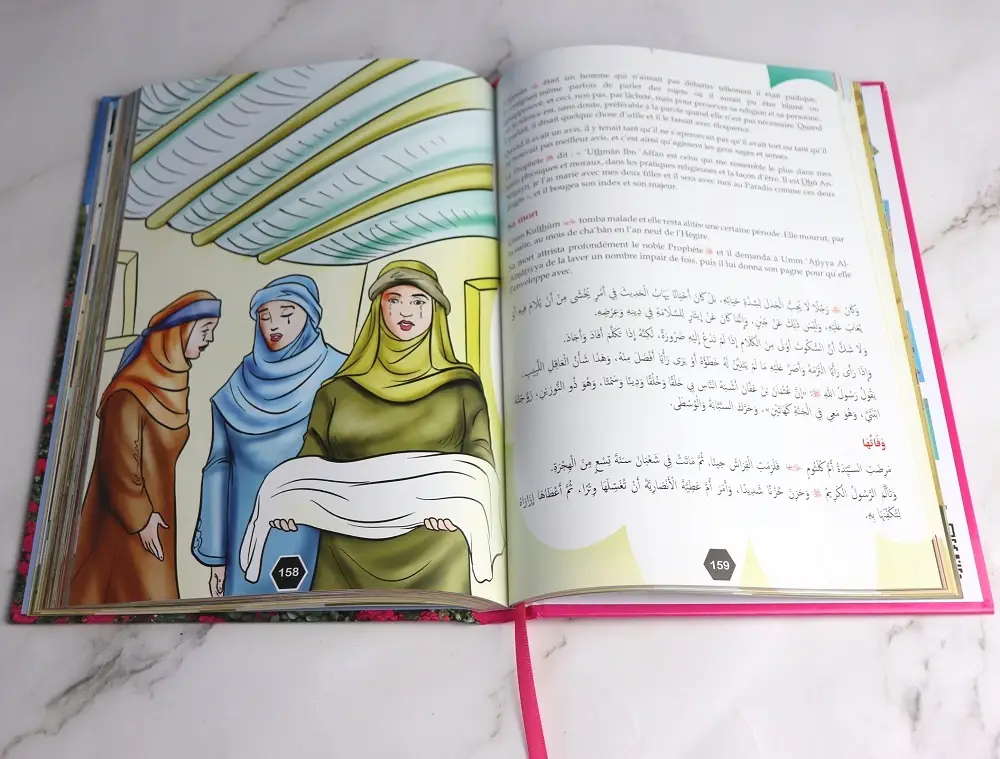 158
était un homme qui n'aimait pas débattre tellement il était pudique,
même parfois de parler des sujets où il aurait pu être blâmé ou
et ceci, non pas, par lâcheté, mais pour préserver sa religion et sa personne.
le silence est, sans doute, préférable à la parole quand elle n'est pas nécessaire. Quand
il parlait, il disait quelque chose d'utile et il le faisait avec éloquence.
Quand il avait un avis, il y tenait tant qu'il ne s'apercevait pas qu'il avait tort ou tant qu'il
ne trouvait pas meilleur avis, et c'est ainsi qu'agissent les gens sages et sensés.
Le Prophète ﷺ dit : « 'Uthmân Ibn 'Affân est celui qui me ressemble le plus dans mes
traits physiques et moraux, dans les pratiques religieuses et la façon d'être. Il est Dhû An-
je l'ai marié avec mes deux filles et il sera avec moi au Paradis comme ces deux
doigts », et il bougea son index et son majeur.
Sa mort
Umm Kulthûm tomba malade et elle resta alitée une certaine période. Elle mourut, par
la suite, au mois de cha'bân en l'an neuf de l'Hégire.
Sa mort attrista profondément le noble Prophète ﷺ et il demanda à Umm 'Atiyya Al-
Ansâriyya de la laver un nombre impair de fois, puis il lui donna son pagne pour qu'elle
l'enveloppe avec.
وَكَانَ رَجُلًا لَا يُحِبُّ الْجَدَلَ لِشِدَّةِ حَيَائِهِ، بَلْ كَانَ أَحْيَانًا يَهَابُ الْحَدِيثَ فِي أَمْرٍ يَخْشَى مِنْ أَنْ يُلَامَ فِيهِ أَوْ
يُعَابَ عَلَيْهِ، وَلَيْسَ ذَلِكَ عَنْ جُبْنٍ، وَإِنَّمَا كَانَ عَنْ إِيثَارٍ لِلسَّلَامَةِ فِي دِينِهِ وَعِرْضِهِ.
وَلَا شَكَّ أَنَّ السُّكُوتَ أَوْلَى مِنَ الْكَلَامِ إِذَا لَمْ تَدْعُ إِلَيْهِ ضَرُورَةٌ، لَكِنَّهُ إِذَا تَكَلَّمَ أَفَادَ وَأَجَادَ.
وَإِذَا رَأَى رَأْيًا الْتَزَمَهُ وَأَصَرَّ عَلَيْهِ مَا لَمْ يَتَبَيَّنْ لَهُ خَطَؤُهُ أَوْ يَرَى رَأْيًا أَفْضَلَ مِنْهُ، وَهَذَا شَأْنُ الْعَاقِلِ اللَّبِيبِ.
يَقُولُ رَسُولُ اللهِ ﷺ: «إِنَّ عُثْمَانَ بْنَ عَفَّانَ أَشْبَهُ النَّاسِ بِي خَلْقًا وَخُلُقًا وَدِينًا وَسَمْتًا، وَهُوَ ذُو النُّورَيْنِ، زَوَّجْتُهُ
ابْنَتَيَّ، وَهُوَ مَعِي فِي الْجَنَّةِ كَهَاتَيْنِ»، وَحَرَّكَ السَّبَّابَةَ وَالْوُسْطَى.
وَفَاتُهَا
مَرِضَتِ السَّيِّدَةُ أُمُّ كُلْثُومٍ فَلَزِمَتِ الْفِرَاشَ حِينًا، ثُمَّ مَاتَتْ فِي شَعْبَانَ سَنَةَ تِسْعٍ مِنَ الْهِجْرَةِ.
وَتَأَلَّمَ الرَّسُولُ الْكَرِيمُ ﷺ وَحَزِنَ حُزْنًا شَدِيدًا، وَأَمَرَ أُمَّ عَطِيَّةَ الْأَنْصَارِيَّةَ أَنْ تُغَسِّلَهَا وِتْرًا، ثُمَّ أَعْطَاهَا إِزَارَهُ
لِتُكَفِّنَهَا بِهِ.
159